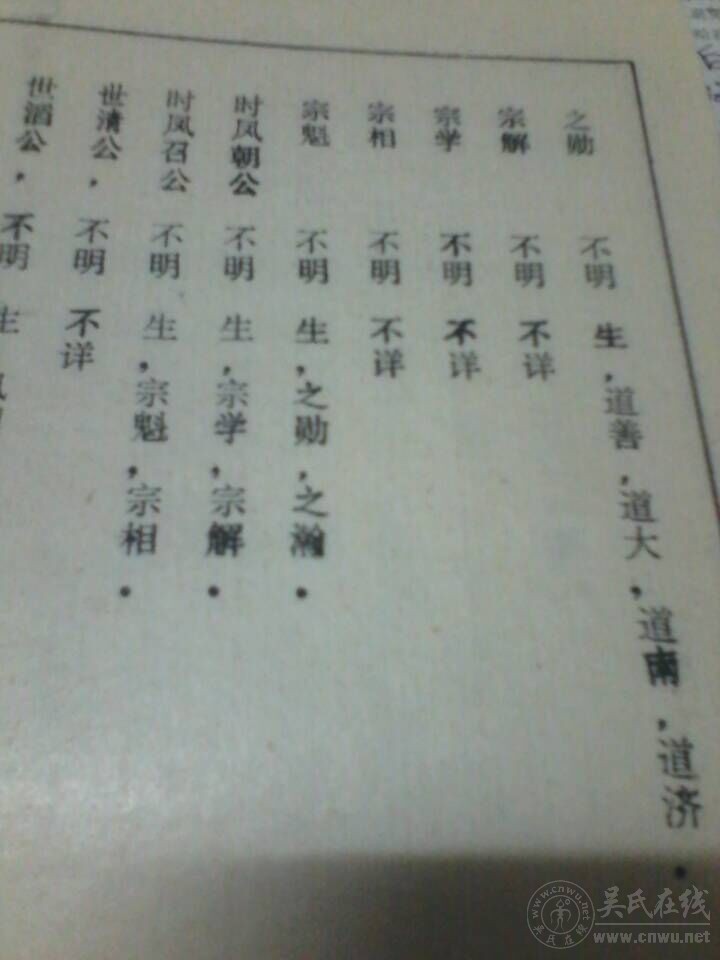 世公，不明 生
世清公，不明 不详
时凤召公 不明 生，宗魁，宗相．
时凤朝公 不明 生，宗学，宗解．
宗魁 不明 生，之勋，之瀚．
宗相 不明 不详
宗学 不明 不详
宗解 不明 不详
之勋 不明 生，道善，道大，道南，道济．
吴氏在线
www.cnwu.net